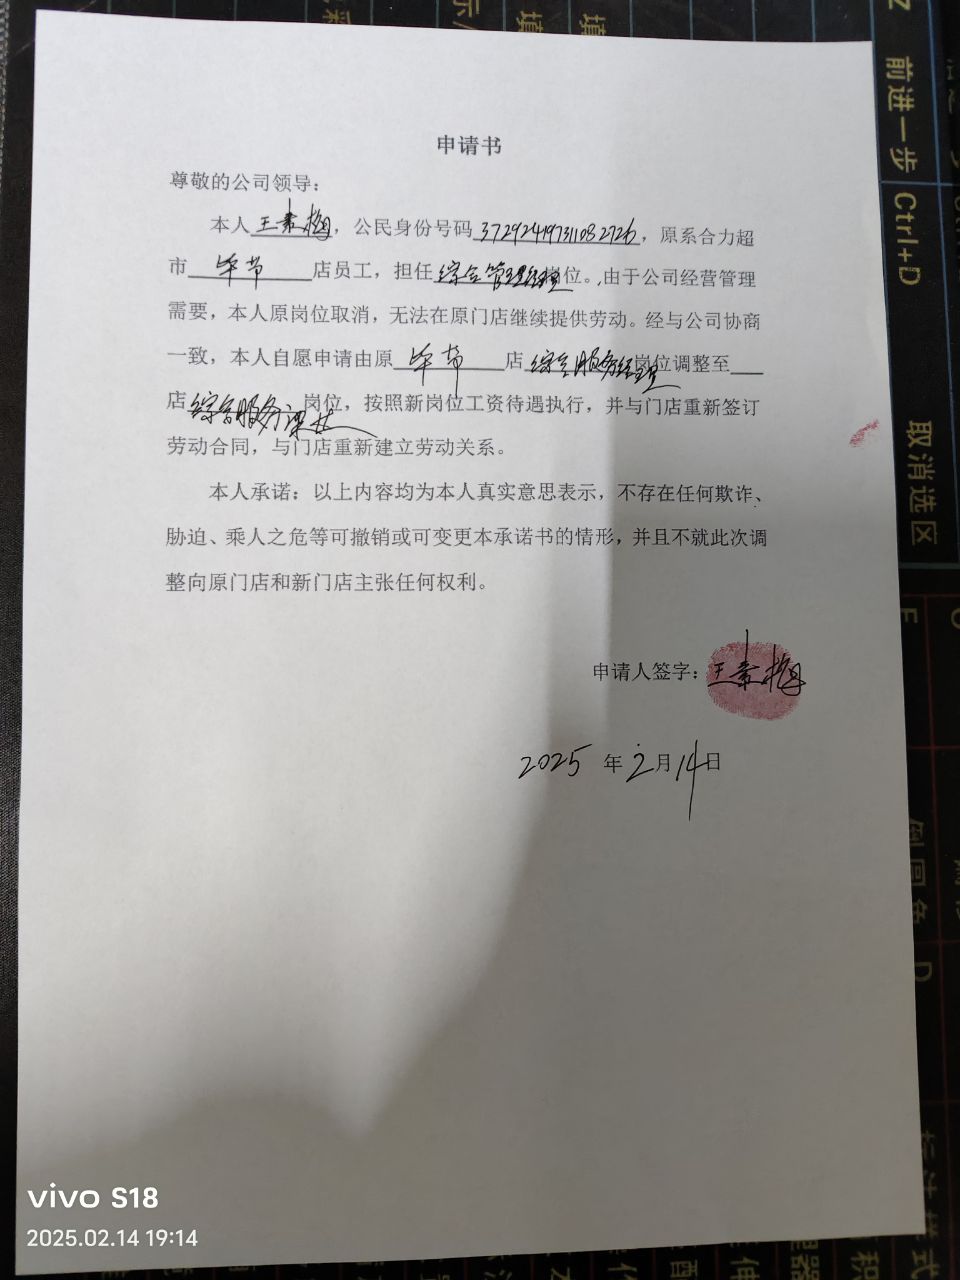 申请书
尊敬的公司领导：
本人王素梅，公民身份号码372924197311082726，原系合力超
市毕节店员工，担任综合管理经理岗位。由于公司经营管理
需要，本人原岗位取消，无法在原门店继续提供劳动。经与公司协商
一致，本人自愿申请由原毕节店综合服务经理岗位调整至
店综合服务课长岗位，按照新岗位工资待遇执行，并与门店重新签订
劳动合同，与门店重新建立劳动关系。
本人承诺：以上内容均为本人真实意思表示，不存在任何欺诈、
胁迫、乘人之危等可撤销或可变更本承诺书的情形，并且不就此次调
整向原门店和新门店主张任何权利。
申请人签字：王素梅
2025年2月14日
vivo S18
2025.02.14 19:14
前进一步 Ctrl+D
取消选区